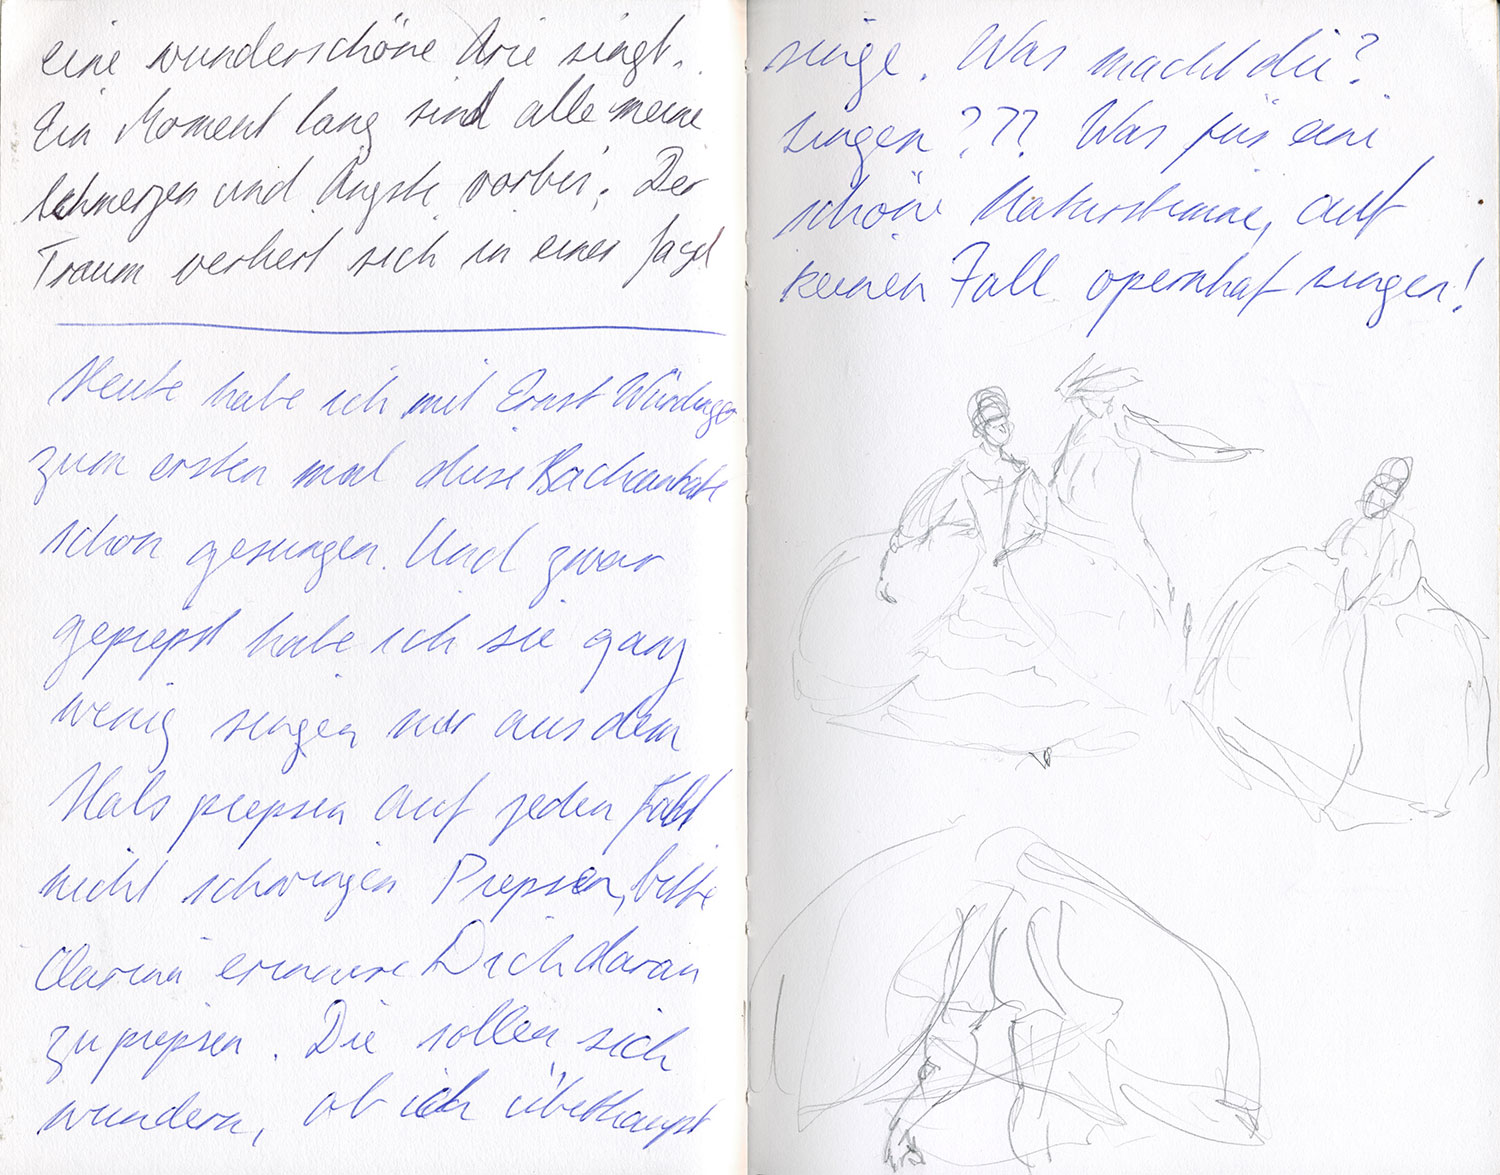 eine wunderschöne Arie singt.
Ein Moment lang sind alle meine
Schmerzen und Ängste vorbei. Der
Traum verliert sich in einer Jagd
Heute habe ich mit Ernst Würdinger
zum ersten mal diese Bachkantate
schon gesungen. Und zwar
gepiepst habe ich sie ganz
wenig singen nur aus dem
Hals piepsen auf jeden Fall
nicht schwingen Piepsen, bitte
erinnere Dich daran
zu piepsen. Die sollen sich
wundern, ob ich überhaupt
singe. Was macht die?
Singen??? Was für eine
schöne Naturstimme, auf
keinen Fall opernhaft singen!